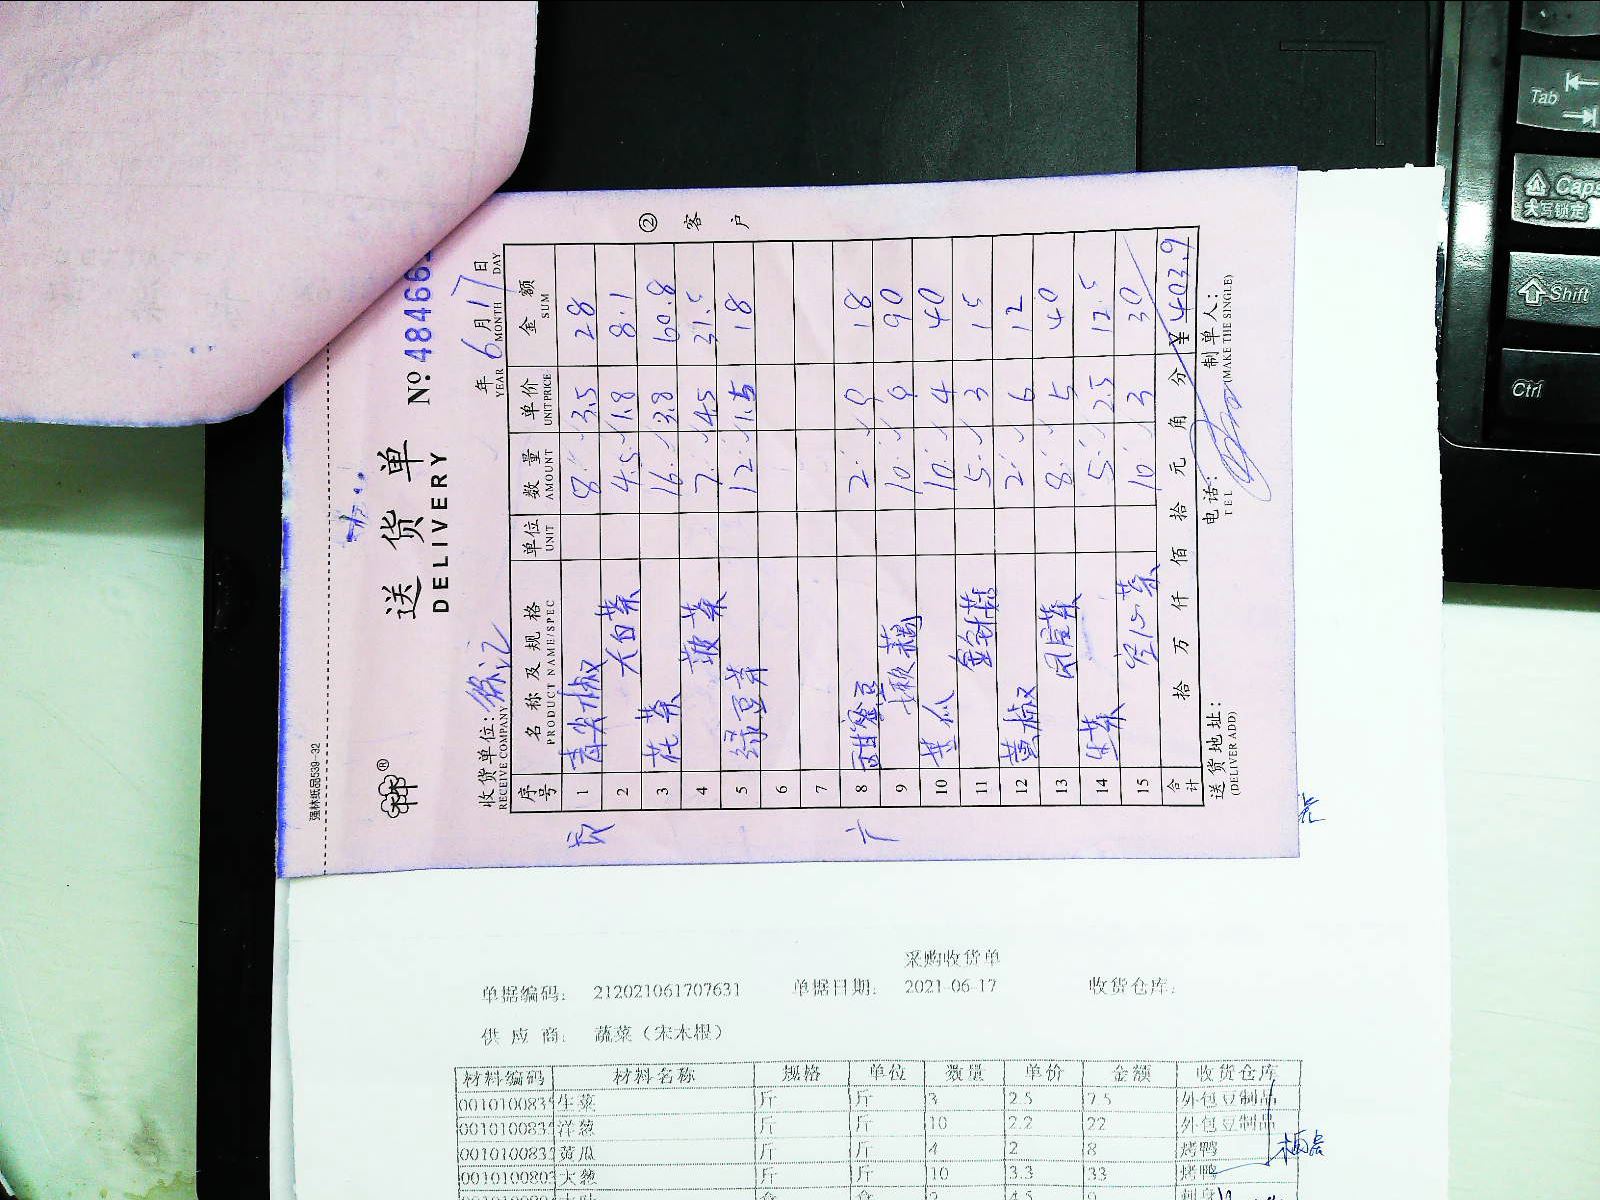 强林纸品539-32
送货单
DELIVERY
№ 48466
收货单位: 徐记
RECEIVE COMPANY
年 6月17日
YEAR MONTH DAY
序号 名称及规格 单位 数量 单价 金额
PRODUCT NAME/SPEC UNIT AMOUNT UNIT PRICE SUM
1 青尖椒 8 3.5 28
2 大白菜 4.5 1.8 8.1
3 花菜 16 3.8 60.8
4 菠菜 7 4.5 31.5
5 绿豆芽 12 1.5 18
6
7
8 2 9 18
9 10 9 90
10 10 4 40
11 金针菇 5 3 15
12 黄椒 2 6 12
13 8 5 40
14 生菜 5 2.5 12.5
15 空心菜 10 3 30
合计 拾 万 仟 佰 拾 元 角 分 ¥403.9
送货地址: 电话: 制单人:
(DELIVER ADD) TEL (MAKE THE SINGLE)
② 客户
采购收货单
单据编码: 212021061707631 单据日期: 2021-06-17 收货仓库:
供应商: 蔬菜(宋木根)
材料编码 材料名称 规格 单位 数量 单价 金额 收货仓库
001010083 生菜 斤 斤 3 2.5 7.5 外包豆制品
001010083 洋葱 斤 斤 10 2.2 22 外包豆制品
001010083 黄瓜 斤 斤 4 2 8 烤鸭
001010080 大葱 斤 斤 10 3.3 33 烤鸭
Tab
Caps
大写锁定
Shift
Ctrl